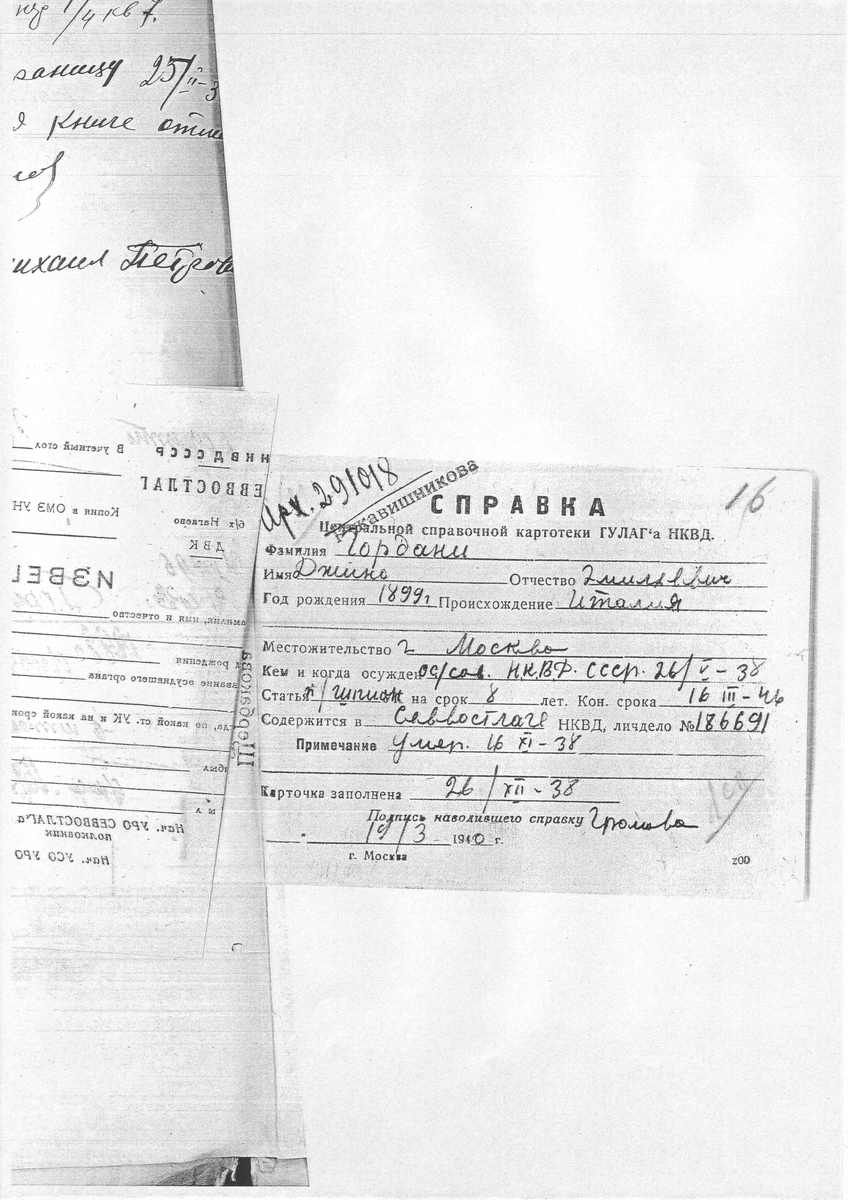 1/4 кв 7.
аницу 25/II-3
я книге отм
ихаил Петров
В учетный стол
НКВД СССР
ЕВВОСТЛАГ
Копия в ОМЗ УН
б/х Нагаево
ДВК
ИЗВЕ
амилия, имя и отчество
д рождения
звание осудившего органа
гда, по какой ст. УК и на какой срок
был
ы л
Нач. УРО СЕВВОСТЛАГ'а
полковник
Нач. УСО УРО
Щербакова
Арх. 291018
Рукавишникова
16
СПРАВКА
Центральной справочной картотеки ГУЛАГ'а НКВД.
Фамилия Гордани
Имя Джино Отчество Эмильевич
Год рождения 1899г Происхождение Италия
Местожительство г. Москва
Кем и когда осужден ос/сов. НКВД. СССР. 26/V-38
Статья п/шпион на срок 8 лет. Кон. срока 16 III-46
Содержится в Севвостлаге НКВД, личдело № 186691
Примечание умер. 16 XI-38
Карточка заполнена 26/XII-38
Подпись наводившего справку Громова
19/3 1940 г.
г. Москва
z00